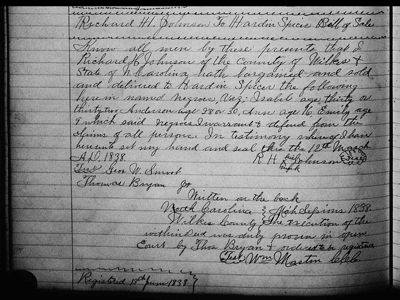 Rychard H. Johnson To Hardin Spicer Bill of Sale
Know all men by these presents that I
Richard H. Johnson of the County of Wilkes &
State of N Carolina hath bargained and sold
and delivered to Hardin Spicer the following
herein named Negroes, Viz: Isabel age thirty or
thirty two Anderson age 28 or 30, Ann age 10 Emily age
& which said Negroes I warrant & defend from the
claims of all persons In testimony whereof I have
hereunto set my hand and seal this the 12th March
A.D. 1838. R. H. Johnson Seal
Test Geo. W. Smoot
Thomas Bryan Jr
Written on the back
North Carolina } Mch Sessions 1838
Wilkes County } The execution of the
within deed was duly proven in open
Court by Thos Bryan & ordered to be registered
Test Wm Mastin Clk
Registered 10th June 1838